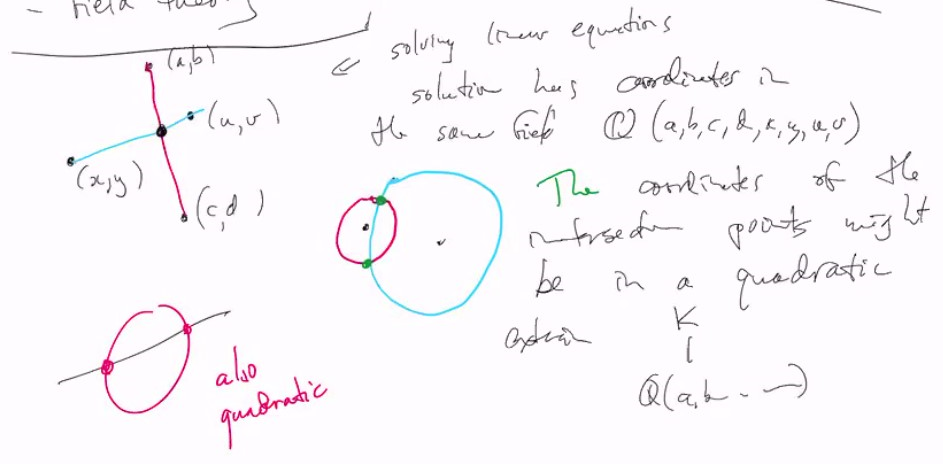 - Field theory
(a,b)
(u,v)
(x,y)
(c,d)
solving linear equations
solution has coordinates in
the same field Q(a,b,c,d,x,y,u,v)
The coordinates of the
intersection points might
be in a quadratic
K
|
Q(a,b...)
also
quadratic